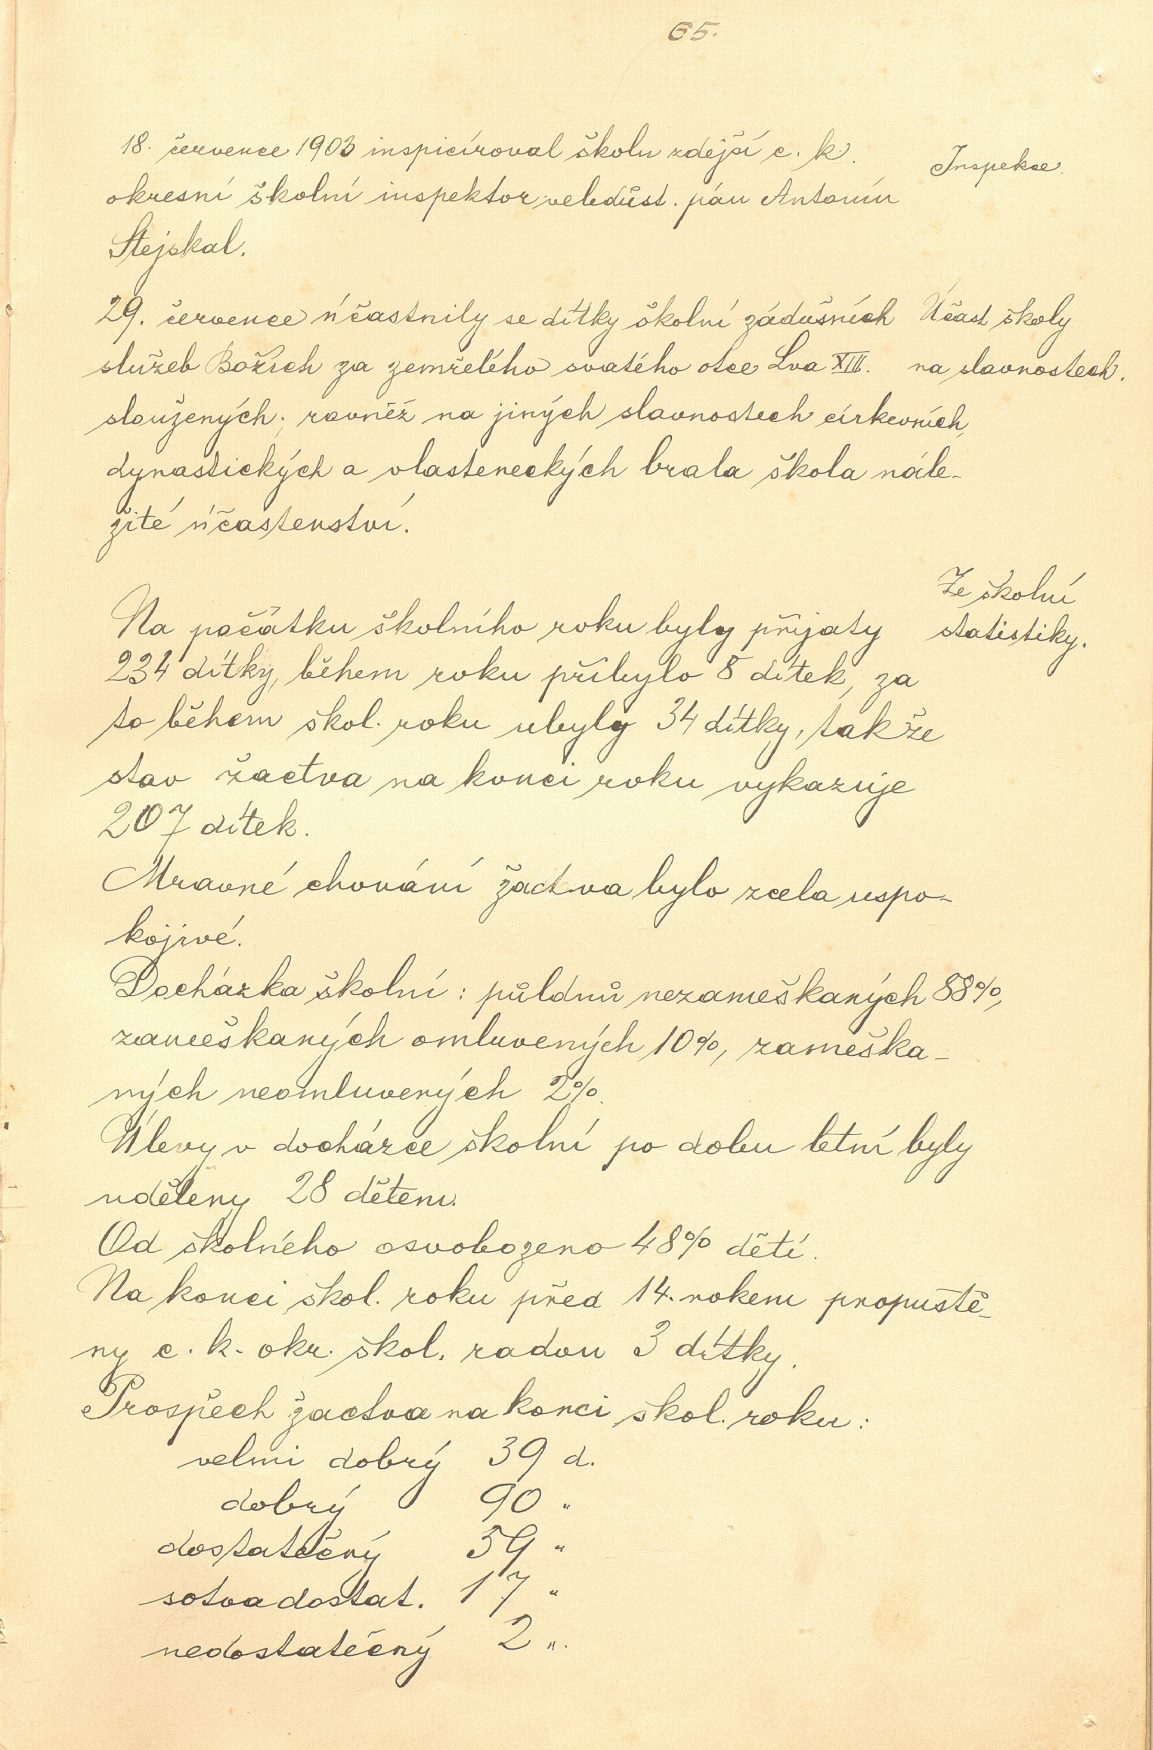 65.
18. července 1903 inspicíroval školu zdejší c. k.
Inspekce.
okresní školní inspektor veledůst. pán Antonín
Stejskal.
29. července účastnily se dítky školní zádušních
Účast školy
služeb Božích za zemřelého svatého otce Lva XIII.
na slavnostech.
sloužených; rovněž na jiných slavnostech církevních,
dynastických a vlasteneckých brala škola nále-
žité účastenství.
Ze školní
Na počátku školního roku byly přijaty
statistiky.
234 dítky, během roku přibylo 8 dítek, za
to během škol. roku ubyly 34 dítky, takže
stav žactva na konci roku vykazuje
207 dítek.
Mravné chování žactva bylo zcela uspo-
kojivé.
Docházka školní: půldnů nezameškaných 88%,
zameškaných omluvených 10%, zameška-
ných neomluvených 2%.
Úlevy v docházce školní po dobu letní byly
uděleny 28 dětem.
Od školného osvobozeno 48% dětí.
Na konci škol. roku před 14. rokem propuště-
ny c. k. okr. škol. radou 3 dítky.
Prospěch žactva na konci škol. roku:
velmi dobrý 39 d.
dobrý 90 "
dostatečný 59 "
sotva dostat. 17 "
nedostatečný 2 ".